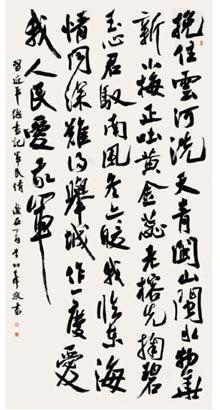 挽住雲河洗天青閩山閩水物華
新小梅正吐黃金蕊老榕先掬碧
玉心君馭南風冬亦暖我臨東海
情同深難得舉城作一慶愛
我人民愛我軍
習近平總書記軍民情 敬書